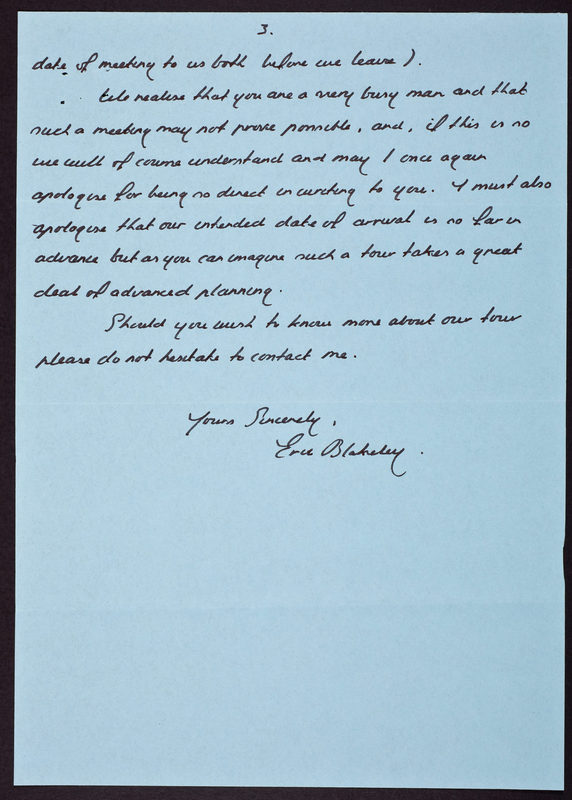 3.
date of meeting to us both before we leave ).
We realise that you are a very busy man and that
such a meeting may not prove possible, and, if this is so
we will of course understand and may I once again
apologise for being so direct in writing to you. I must also
apologise that our intended date of arrival is so far in
advance but as you can imagine such a tour takes a great
deal of advanced planning.
Should you wish to know more about our tour
please do not hesitate to contact me.
Yours Sincerely,
Eric Blakeley.